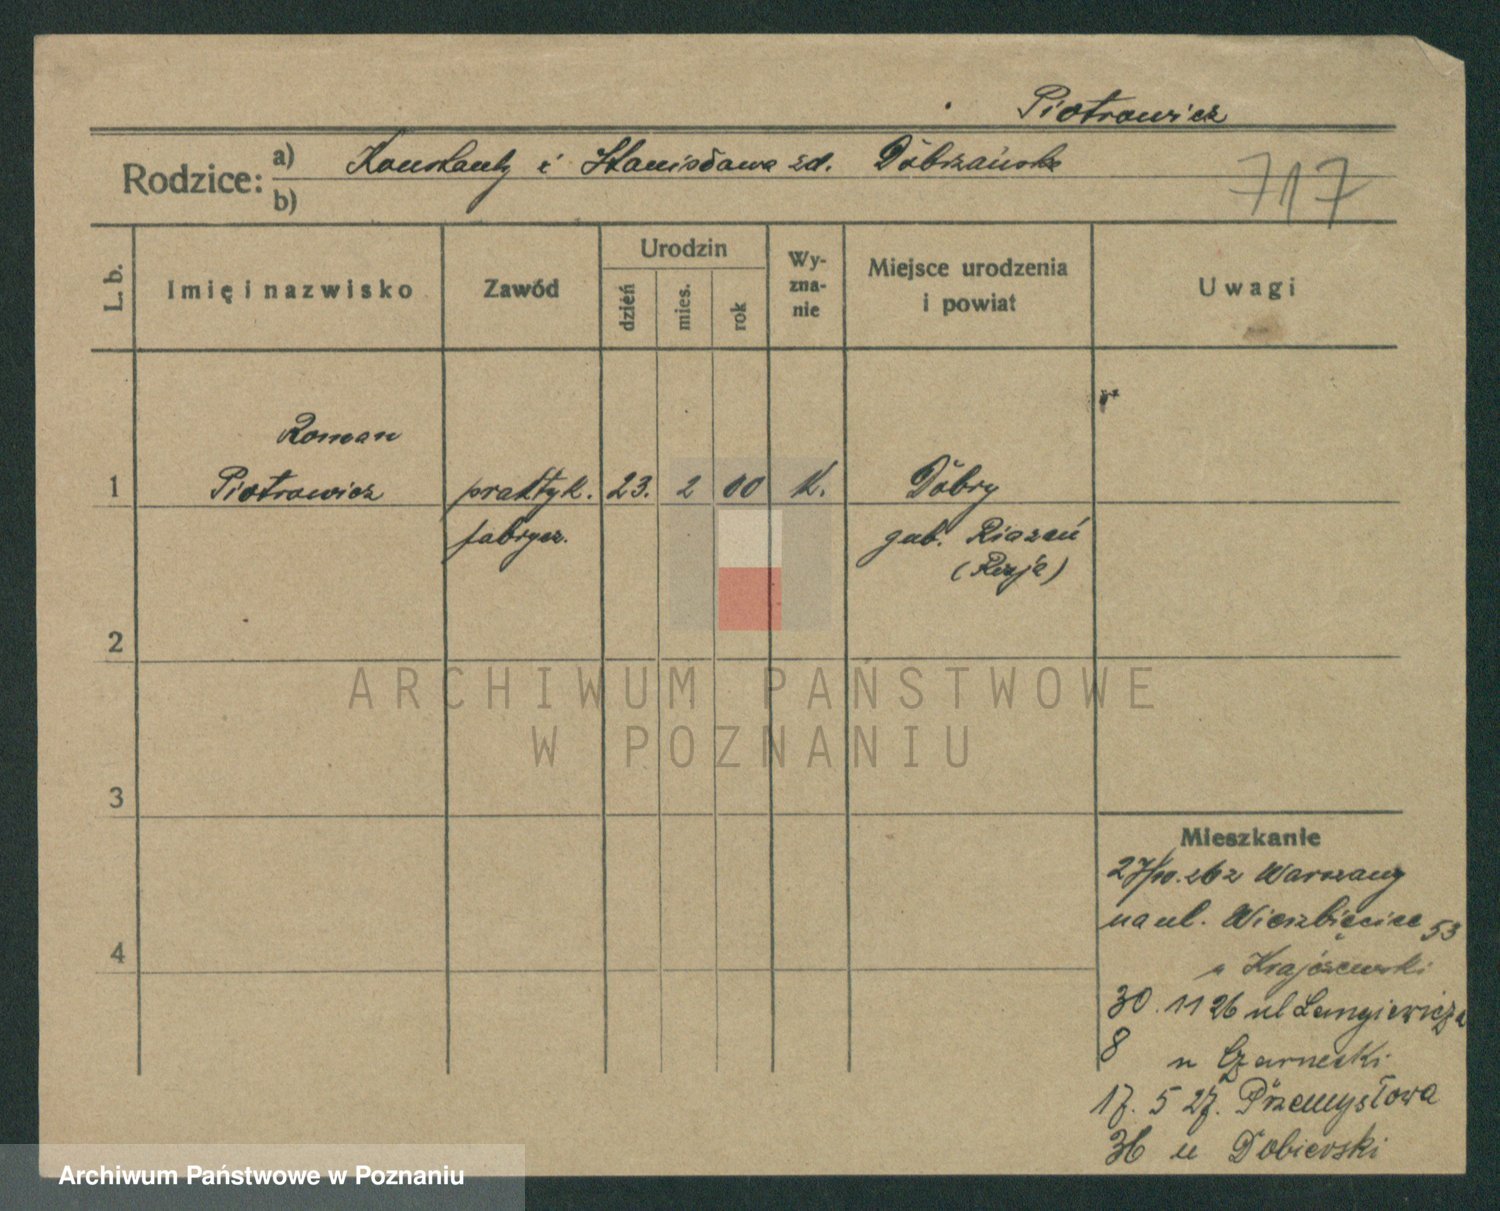 Piotrowicz
Rodzice: a) Konstanty i Stanisława zd. Dobrzańska
b)
717
L. b.
Imię i nazwisko
Zawód
Urodzin
dzień
mies.
rok
Wy-
zna-
nie
Miejsce urodzenia
i powiat
Uwagi
Roman
1 Piotrowicz praktyk. 23. 2 00 k. Dobry
fabrycz. gub. Riazań
(Rosja)
2
ARCHIWUM PAŃSTWOWE
W POZNANIU
3
Mieszkanie
27/10.26 z Warszawy
na ul. Wierzbięcice 53
u Krajczewski
4
30. 11 26 ul Langiewicza
8 u Czarnecki
17. 5 27. Przemysłowa
36 u Dobierski
Archiwum Państwowe w Poznaniu